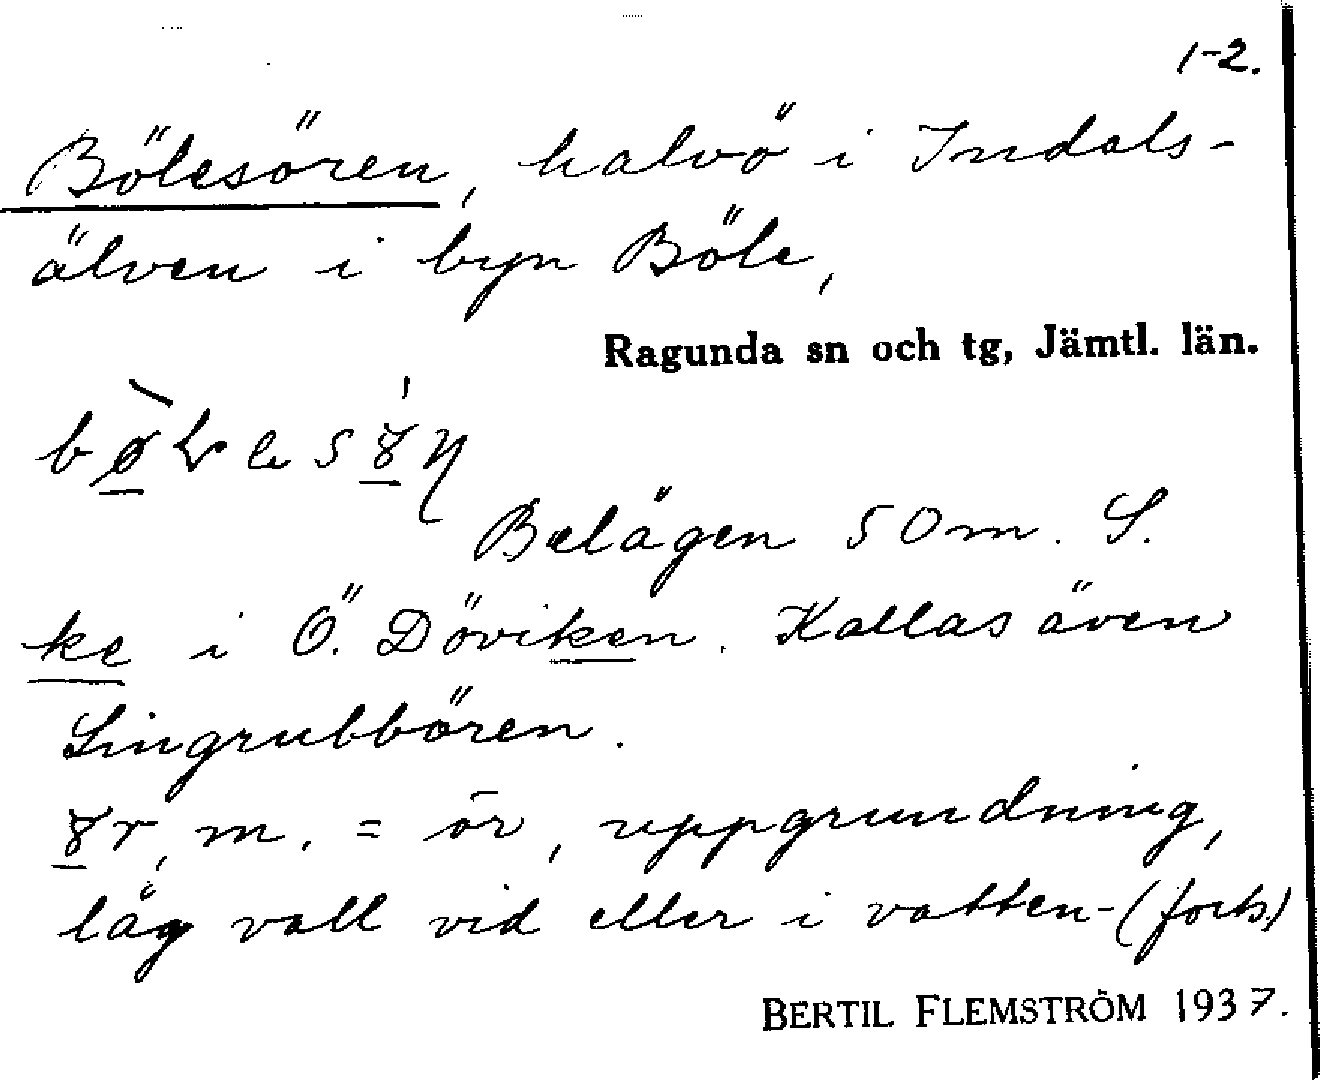 1-2.
Bölesören, halvö i Indals-
älven i byn Böle,
Ragunda sn och tg, Jämtl. län.
Belägen 50 m. S.
ke i Ö. Döviken. Kallas även
Lingrubbören.
m. = ör, uppgrundning,
låg vall vid eller i vatten- (forts)
BERTIL FLEMSTRÖM 1937.